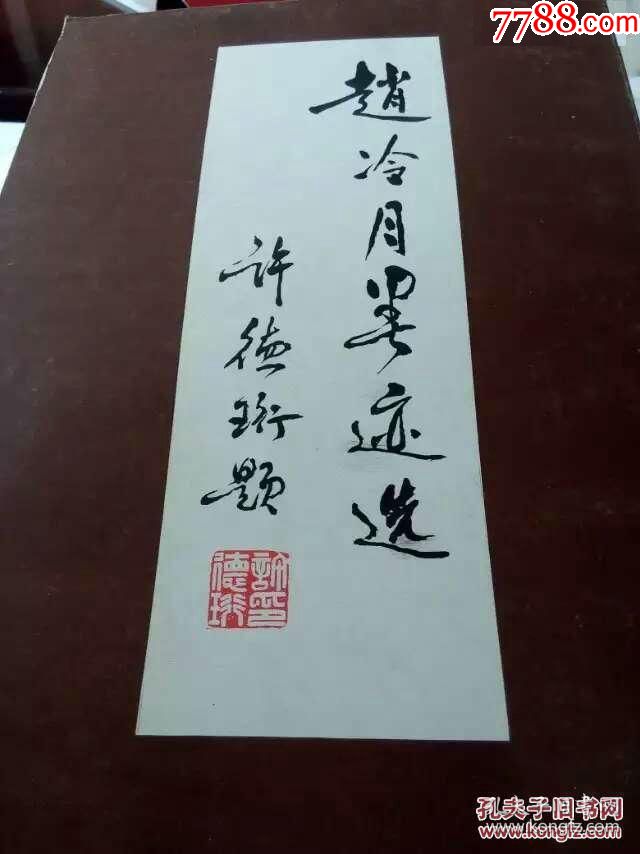 7788.com
趙冷月墨迹选
许德珩题
許德珩印
孔夫子旧书网
www.kongfz.com